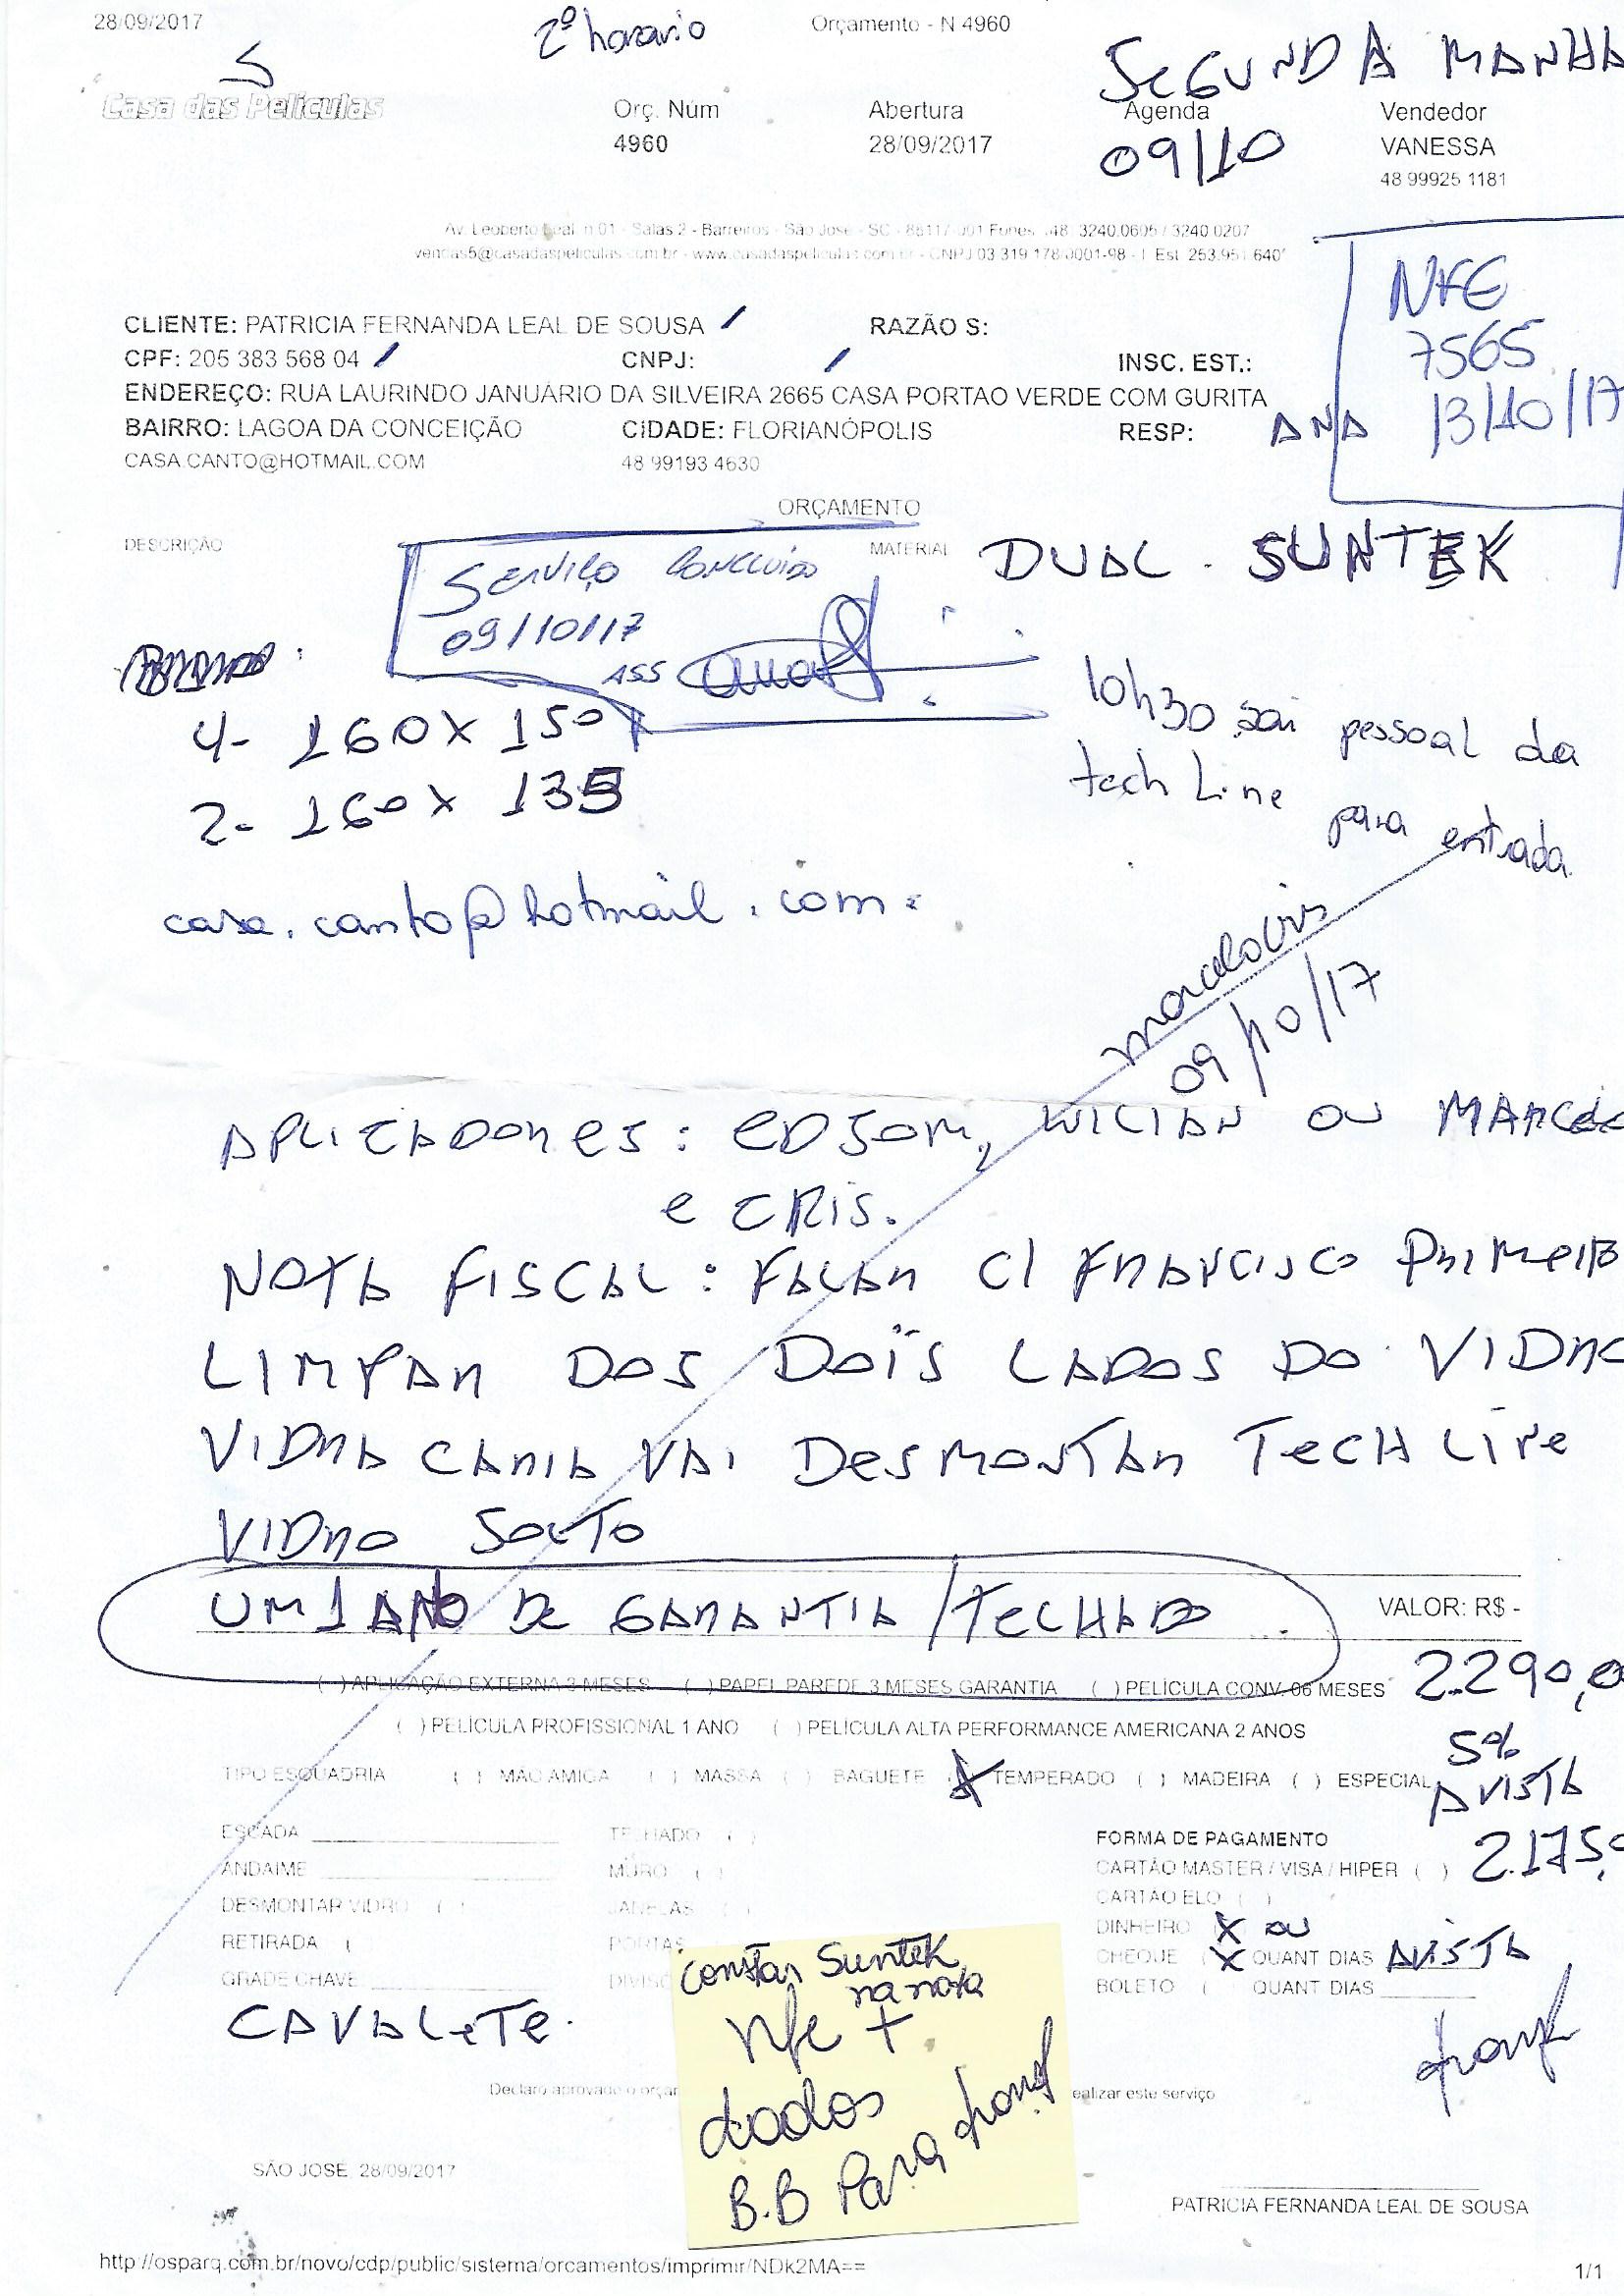 28/09/2017
2º horario
Orçamento - N 4960
SEGUNDA MANHA
5
Casa das Películas
Orç. Núm
Abertura
Agenda
Vendedor
4960
28/09/2017
09/10
VANESSA
48 99925 1181
Av. Leoberto Leal, n.01 - Salas 2 - Barreiros - São José - SC - 88117-001 Fones: (48) 3240.0605 / 3240.0207
vendas5@casadaspeliculas.com.br - www.casadaspeliculas.com.br - CNPJ 03.319.178/0001-98 - I. Est. 253.951.640
NFE
7565
13/10/17
CLIENTE: PATRICIA FERNANDA LEAL DE SOUSA
RAZÃO S:
CPF: 205 383 568 04
CNPJ:
INSC. EST.:
ENDEREÇO: RUA LAURINDO JANUÁRIO DA SILVEIRA 2665 CASA PORTAO VERDE COM GURITA
BAIRRO: LAGOA DA CONCEIÇÃO
CIDADE: FLORIANÓPOLIS
RESP: ANA
CASA.CANTO@HOTMAIL.COM
48 99193 4630
ORÇAMENTO
DESCRIÇÃO
MATERIAL DUAL. SUNTEK
SERVIÇO CONCLUIDO
09/10/17
ASS
4- 160 X 150
2- 160 X 135
10h30 sai pessoal da
tech Line para entrada
casa.canto@hotmail.com
09/10/17
APLICADORES: EDSOM, WILIAN OU
E CRIS.
NOTA FISCAL: FALAR C/ FRANCISCO PRIMEIRO
LIMPAR DOS DOIS LADOS DO VIDRO
VIDRA CARIA VAI DESMONTAR TECH LINE
VIDRO SOLTO
UM 1 ANO DE GARANTIA / TECHADO
VALOR: R$ -
2.290,0
( ) APLICAÇÃO EXTERNA 3 MESES ( ) PAPEL PAREDE 3 MESES GARANTIA ( ) PELÍCULA CONV. 06 MESES
( ) PELÍCULA PROFISSIONAL 1 ANO ( ) PELÍCULA ALTA PERFORMANCE AMERICANA 2 ANOS
5%
AVISTA
TIPO ESQUADRIA ( ) MÃO AMIGA ( ) MASSA ( ) BAGUETE (X) TEMPERADO ( ) MADEIRA ( ) ESPECIAL
ESCADA
TECHADO ( )
FORMA DE PAGAMENTO
2.175,
ANDAIME
MURO ( )
CARTÃO MASTER / VISA / HIPER ( )
DESMONTAR VIDRO ( )
JANELAS ( )
CARTÃO ELO ( )
RETIRADA (
PORTAS
DINHEIRO (X OU
GRADE CHAVE
DIVISÓ
CHEQUE (X QUANT DIAS AVISTA
BOLETO ( QUANT DIAS
CAVALETE.
constar Suntek
na nota
Nfe +
dados
B.B Para transf
transf
Declaro aprovado o orçam
ealizar este serviço
SÃO JOSÉ, 28/09/2017
PATRICIA FERNANDA LEAL DE SOUSA
http://osparq.com.br/novo/cdp/public/sistema/orcamentos/imprimir/NDk2MA==
1/1